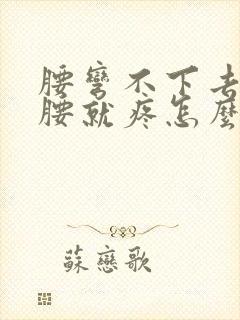 腰彎不下去
腰就疼怎麼
蘇戀歌